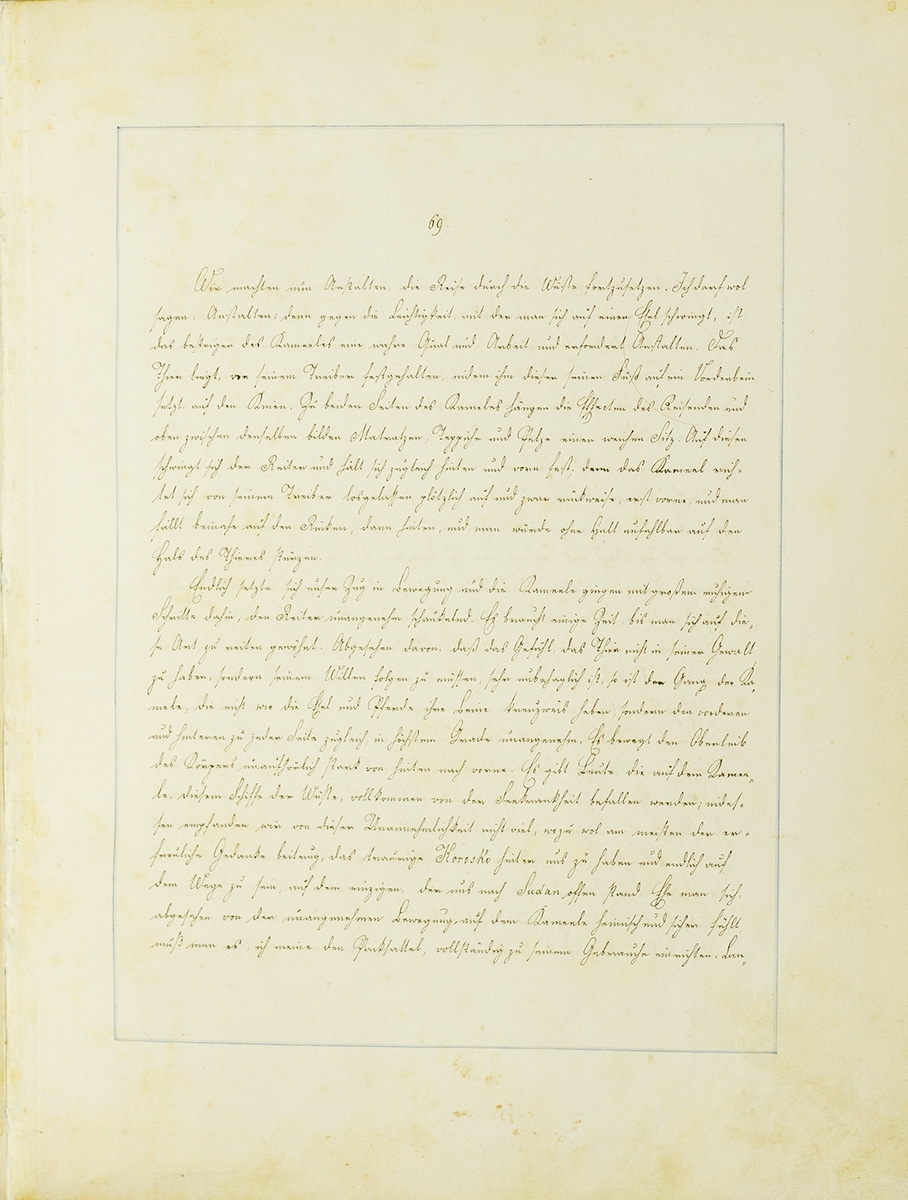 69.
Wir machten nun Anstalten, die Reise durch die Wüste fortzusetzen. Ich darf wol
sagen: Anstalten; denn gegen die Leichtigkeit, mit der man sich auf einen Esel schwingt, ist
das besteigen des Kameeles eine wahre Qual und Arbeit und erfordert Anstalten. Das
Thier liegt, von seinem Treiber festgehalten, indem ihm dieser seinen Fuß auf ein Vorderbein
setzt, auf den Knien. Zu beiden Seiten des Kameles hängen die Effecten des Reisenden und
oben zwischen denselben bilden Matratzen, Teppiche und Pelze einen weichen Sitz. Auf diesen
schwingt sich der Reiter und hält sich zugleich hinten und vorn fest; denn das Kameel rich-
tet sich von seinem Treiber losgelassen plötzlich auf und zwar ruckweise, erst vorne, und man
fällt beinahe auf den Rücken, dann hinten, und man würde ohne Halt unfehlbar auf den
Hals des Thieres stürzen.
Endlich setzte sich unser Zug in Bewegung und die Kameele gingen mit großem ruhigem
Schritte dahin, den Reiter unangenehm schaukelnd. Es braucht einige Zeit, bis man sich auf die-
se Art zu reiten gewöhnt. Abgesehen davon, daß das Gefühl, das Thier nicht in seiner Gewalt
zu haben, sondern seinem Willen folgen zu müssen, sehr unbehaglich ist, so ist der Gang der Ka-
mele, die nicht wie die Esel und Pferde ihre Beine kreuzweis heben sondern den vorderen
und hinteren zu jeder Seite zugleich, in höchstem Grade unangenehm. Es bewegt den Oberleib
des Körpers unaufhörlich stark von hinten nach vorne. Es gibt Leute, die auf dem Kamee-
le, diesem Schiffe der Wüste, vollkommen von der Seekrankheit befallen werden; indes-
sen empfanden wir von dieser Unannehmlichkeit nicht viel, wozu wol am meisten der er-
freuliche Gedanke beitrug, das traurige Korosko hinter uns zu haben und endlich auf
dem Wege zu sein, auf dem einzigen, der uns nach Sudan offen stand. Ehe man sich,
abgesehen von der unangenehmen Bewegung, auf dem Kameele heimisch und sicher fühlt
muß man es, ich meine den Packsattel, vollständig zu seinem Gebrauche einrichten. Lan-